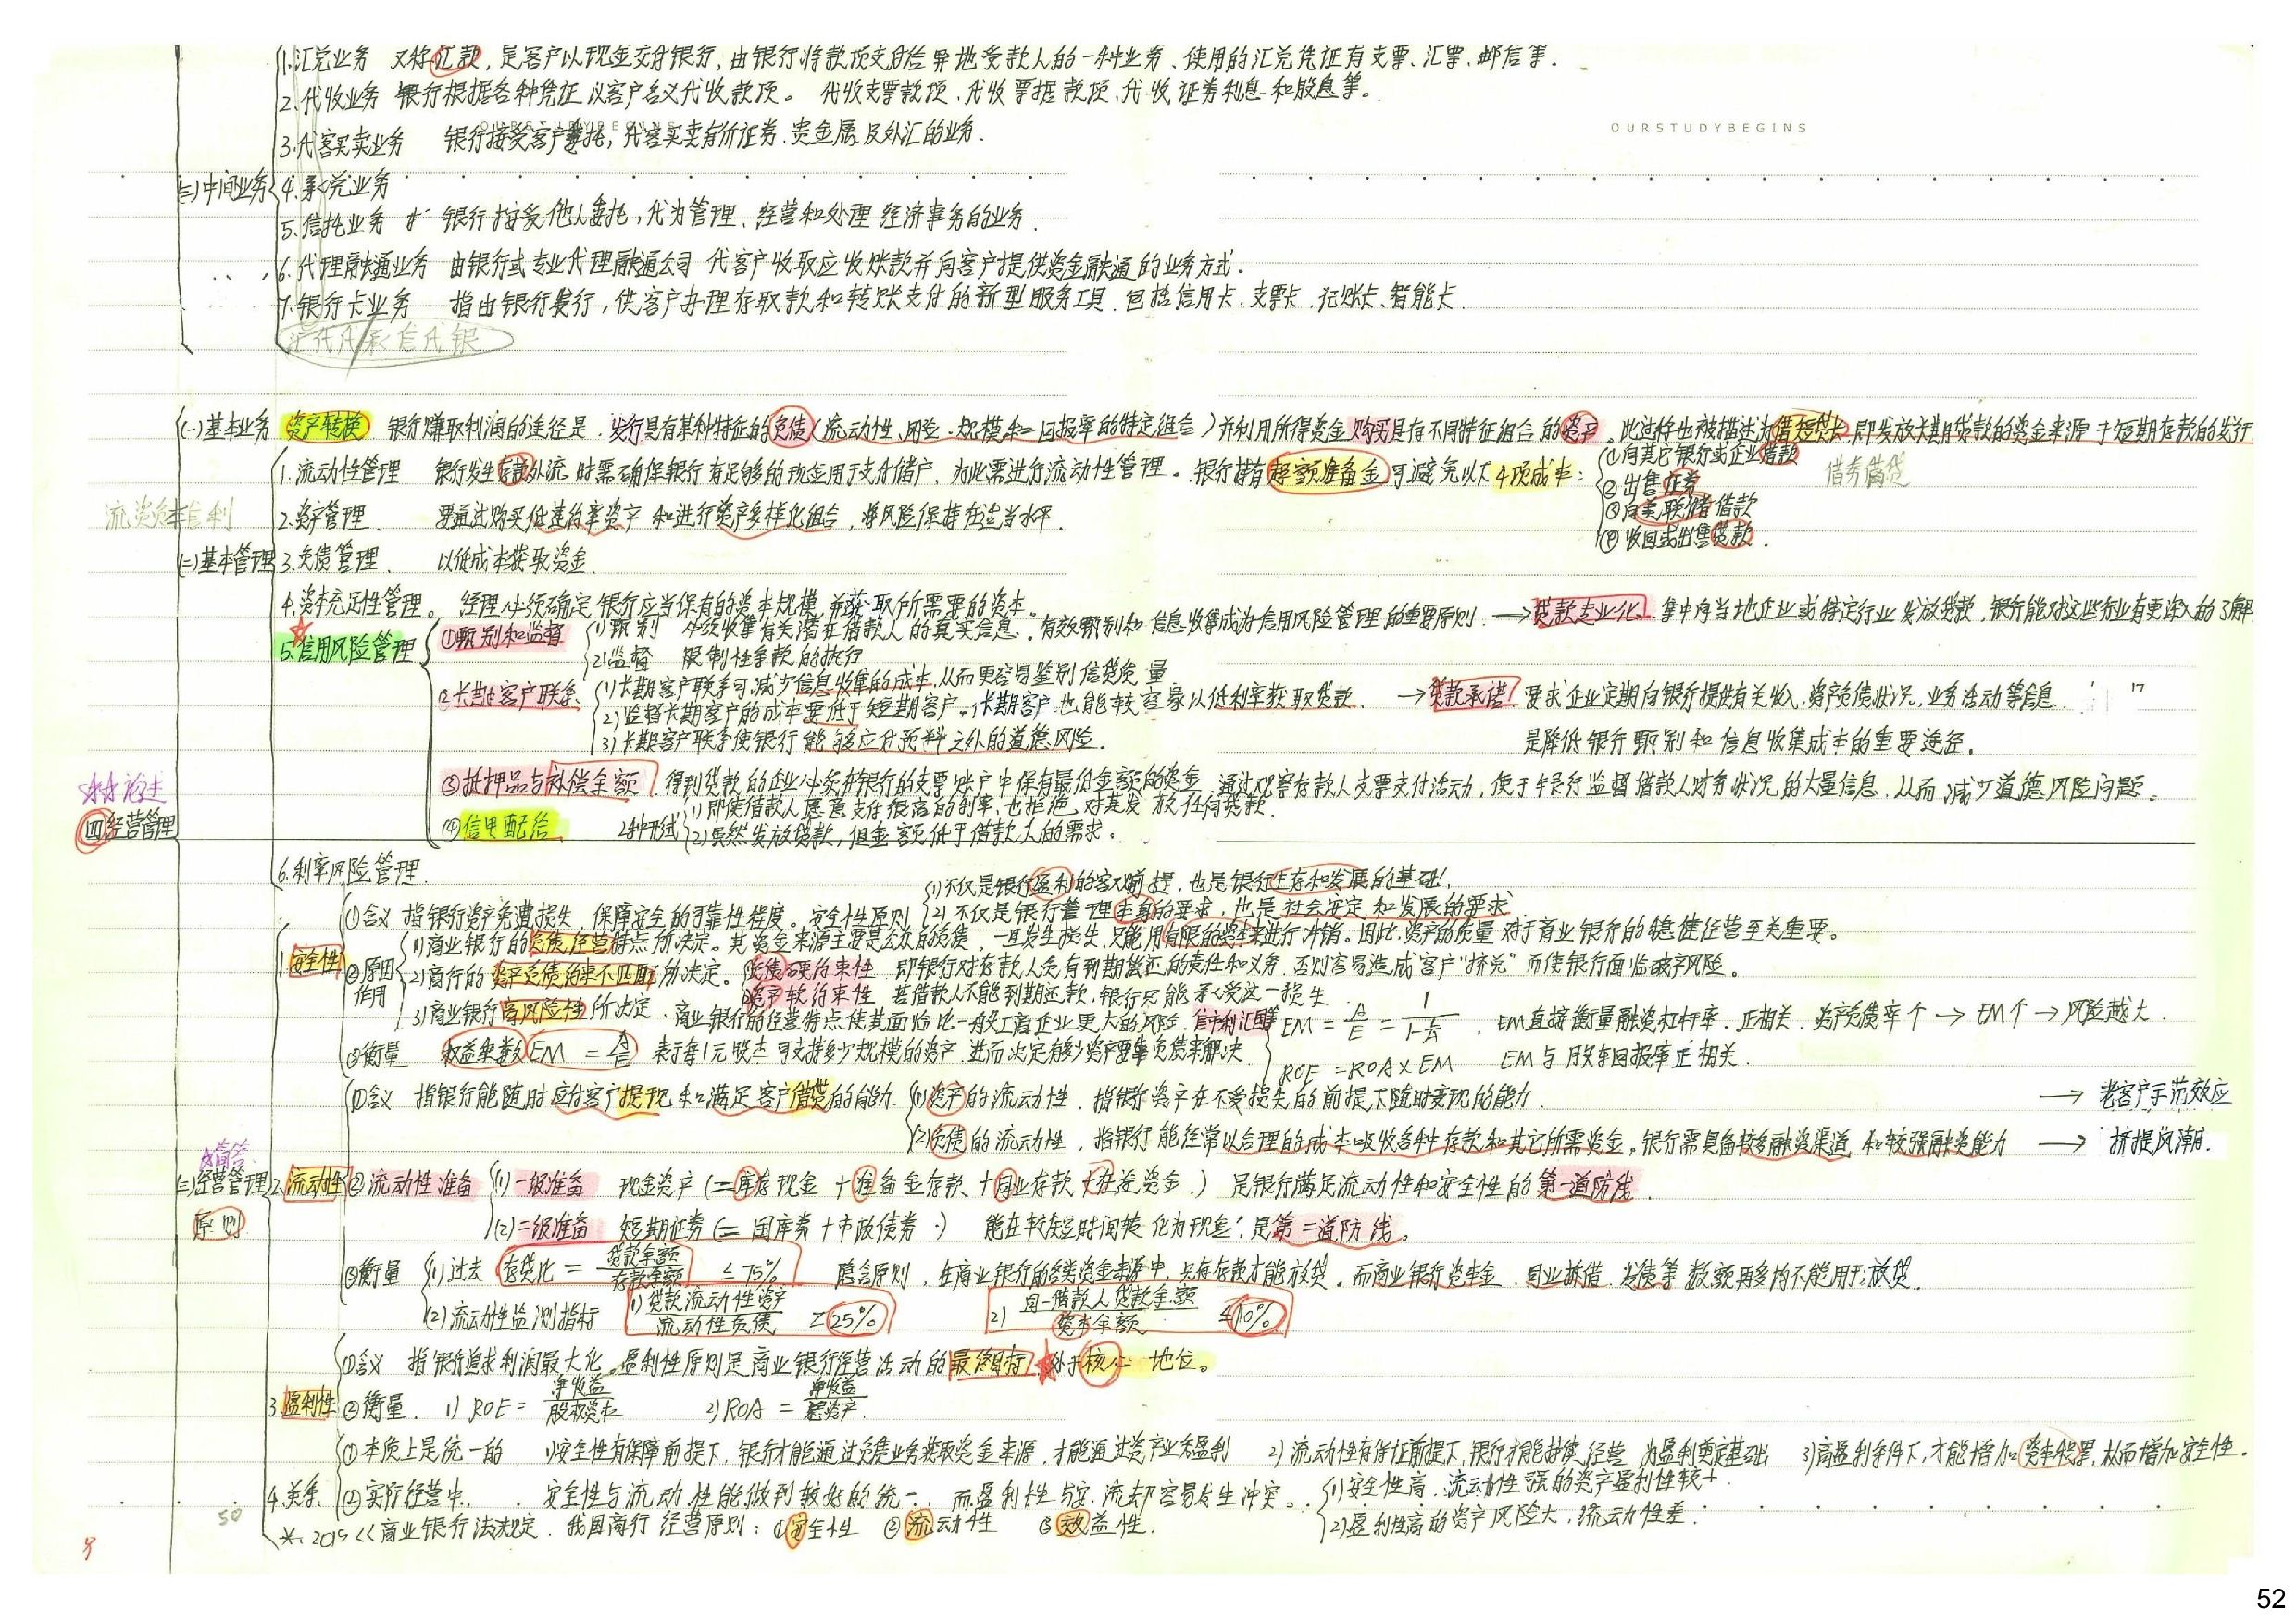 1.汇兑业务 又称汇款,是客户以现金交付银行,由银行将款项支付给异地受款人的一种业务、使用的汇兑凭证有支票、汇票、邮信等.
2.代收业务 银行根据各种凭证以客户名义代收款项。代收支票款项、代收票据款项、代收证券利息和股息等。
OURSTUDYBEGINS
OURSTUDYBEGINS
3.代客买卖业务 银行接受客户委托,代客买卖有价证券、贵金属及外汇的业务.
(三)中间业务
4.承兑业务
5.信托业务 银行接受他人委托,代为管理、经营和处理经济事务的业务.
6.代理融通业务 由银行或专业代理融通公司代客户收取应收账款并向客户提供资金融通的业务方式.
7.银行卡业务 指由银行发行,供客户办理存取款和转账支付的新型服务工具.包括信用卡、支票卡、记账卡、智能卡.
汇代代承信代银
(一)基本业务 资产转换 银行赚取利润的途径是,发行具有某种特征的负债(流动性、风险、规模和回报率的特定组合)并利用所得资金购买具有不同特征组合的资产。此过程也被描述为借短贷长,即发放长期贷款的资金来源于短期存款的发行
1.流动性管理 银行发生存款外流时需确保银行有足够的现金用于支付储户,为此需进行流动性管理。银行持有超额准备金可避免以下4项成本:
①向其它银行或企业借款
②出售证券
③向美联储借款
④收回或出售贷款.
借券储贷
流资负本信利
2.资产管理. 要通过购买低违约率资产和进行资产多样化组合,将风险保持在适当水平.
(二)基本管理
3.负债管理. 以低成本获取资金.
4.资本充足性管理。经理必须确定银行应当保有的资本规模,并获取所需要的资本.
5.信用风险管理
①甄别和监督
1)甄别 必须收集有关潜在借款人的真实信息.有效甄别和信息收集成为信用风险管理的重要原则. → 贷款专业化. 集中向当地企业或特定行业发放贷款,银行能对这些行业有更深入的了解
2)监督 限制性条款的执行
②长期客户联系
1)长期客户联系可减少信息收集的成本,从而更容易鉴别信贷质量
2)监督长期客户的成本要低于短期客户,长期客户也能较容易以低利率获取贷款. → 贷款承诺! 要求企业定期向银行提供有关收入、资产负债状况,业务活动等信息.
3)长期客户联系使银行能够应付预料之外的道德风险.
是降低银行甄别和信息收集成本的重要途径.
17
③抵押品与补偿余额 得到贷款的企业必须在银行的支票账户中保有最低金额的资金,通过观察存款人支票支付活动,便于银行监督借款人财务状况的大量信息,从而减少道德风险问题。
④信用配给 2种形式
1)即使借款人愿意支付很高的利率,也拒绝对其发放任何贷款.
2)虽然发放贷款,但金额低于借款人的需求.
论述
(四)经营管理
6.利率风险管理.
1.安全性
①含义 指银行资产免遭损失,保障安全的可靠性程度。安全性原则
1)不仅是银行盈利的客观前提,也是银行生存和发展的基础!
2)不仅是银行管理本身的要求,也是社会安定和发展的要求
②原因 作用
1)商业银行的负债经营特点所决定。其资金来源主要是公众的负债,一旦发生损失,只能用有限的资本来进行冲销。因此,资产的质量对于商业银行的稳健经营至关重要。
2)商行的资产负债约束不匹配所决定。负债硬约束性 即银行对存款人负有到期偿还的责任和义务,否则容易造成客户"挤兑"而使银行面临破产风险。
资产软约束性 若借款人不能到期还款,银行只能承受这一损失.
3)商业银行高风险性所决定.商业银行的经营特点使其面临比一般工商企业更大的风险.信市利汇国
③衡量 权益乘数EM = A/E 表示每1元股本可支持多少规模的资产,进而决定有多少资产要靠负债来解决.
EM = A/E = 1/ EM直接衡量融资杠杆率.正相关.资产负债率个 → EM个 → 风险越大.
ROE = ROA×EM EM与股东回报率正相关.
2.流动性
①含义 指银行能随时应付客户提现和满足客户借贷的能力
(1)资产的流动性,指银行资产在不受损失的前提下随时变现的能力. → 老客户示范效应
(2)负债的流动性,指银行能经常以合理的成本吸收各种存款和其它所需资金.银行需具备较多融资渠道和较强融资能力 → 挤提风潮.
简答
(三)经营管理原则
②流动性准备
(1)一级准备 现金资产(=库存现金+准备金存款+同业存款+在途资金.) 是银行满足流动性和安全性的第一道防线.
(2)二级准备 短期证券(=国库券+市政债券.) 能在较短时间转化为现金!是第二道防线。
③衡量
(1)过去 存贷比 = 贷款余额/存款余额 ≤75% 隐含原则,在商业银行的各类资金来源中,只有存款才能放贷。而商业银行资本金、同业拆借、发债等数额再多均不能用于放贷.
(2)流动性监测指标 1)贷款流动性资产/流动性负债 ≥25% 2)同一借款人贷款余额/资本余额 ≤10%
3.盈利性
①含义 指银行追求利润最大化.盈利性原则是商业银行经营活动的最终目标,处于核心地位。
②衡量. 1)ROE = 净收益/股权资本 2)ROA = 净收益/总资产.
4.关系.
①本质上是统一的 1)安全性有保障前提下,银行才能通过负债业务获取资金来源,才能通过资产业务盈利 2)流动性有保证前提下,银行才能持续经营,为盈利奠定基础 3)高盈利条件下,才能增加资本积累,从而增加安全性.
②实际经营中. 安全性与流动性能做到较好的统一,而盈利性与安、流却容易发生冲突。
1)安全性高、流动性强的资产盈利性较小.
2)盈利性高的资产风险大,流动性差.
*.2015《商业银行法规定.我国商行经营原则:①安全性 ②流动性 ③效益性.
50
52